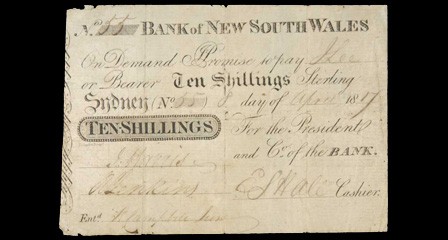 No. 55 BANK of NEW SOUTH WALES
On Demand I Promise to pay
or Bearer Ten Shillings Sterling
Sydney (No. 55) 8 day of April 1817
TEN-SHILLINGS For the President
and Co. of the BANK.
J. Harris
Jenkins E S Hall Cashier.
Entd.